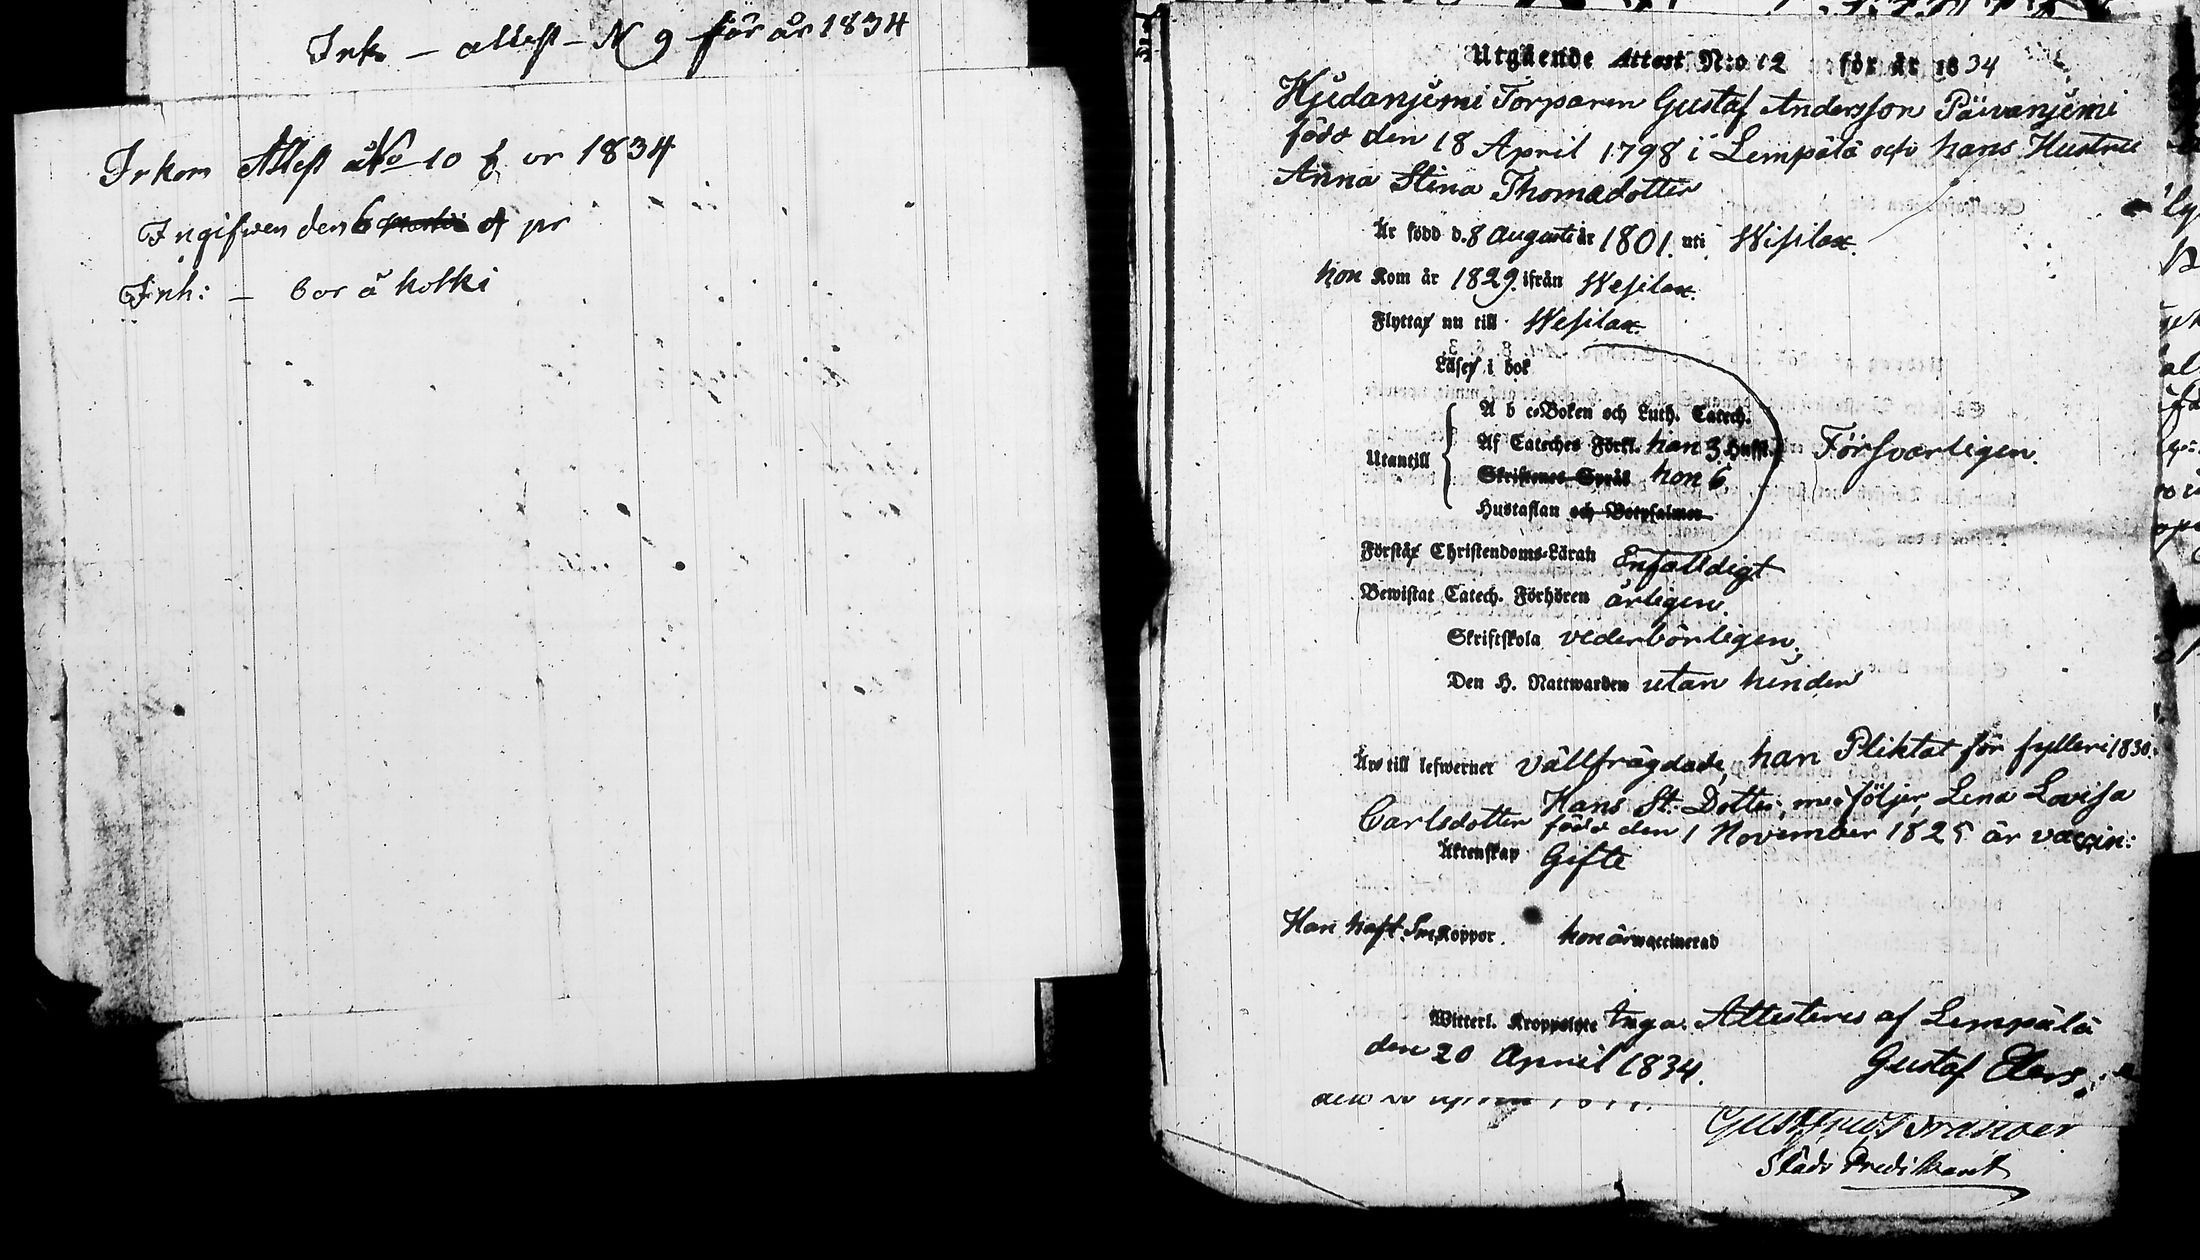 Ink. – attest – N 9 för år 1834
Inkom Attest No 10 för 1834
Ingifwen den 6
Inh: – bor å kolki
Utgående Attest N:o 12 för år 1834
Hjedanjemi Torparen Gustaf Andersson Päivanjemi
född den 18 April 1798 i Lempälä och hans Hustru
Anna Stina Thomadotter
Är född d. 8 Augusti år 1801. uti Wesilax.
hon Kom år 1829. ifrån Wesilax.
Flytta nu till Wesilax.
Läse i bok
A b c-Boken och Luth. Catech.
Utantill Af Cateches Förkl. han 3. Hufst. Försvarligen.
Skriftenes Språk hon 6.
Hustaflan och Botpsalmer
Förstå Christendoms-Läran Enfaldigt
Bewistat Catech. Förhören årligen.
Skriftskola vederbörligen.
Den H. Nattwarden utan hinder
Äro till lefwernet välfrägdade, han Pliktat för fylleri 1830.
Hans St. Dotter medföljer, Lena Lovisa
Carlsdotter född den 1 November 1825 är vaccin:
Äktenskap Gifte
Han haft Smkoppor. hon är vaccinerad
Witterl. Kroppslyte Inga. Attesteres af Lempälä
den 20 April 1834. Gustaf
Stads Predikant